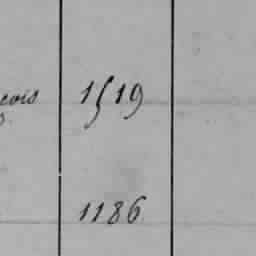 cois 1519
1186